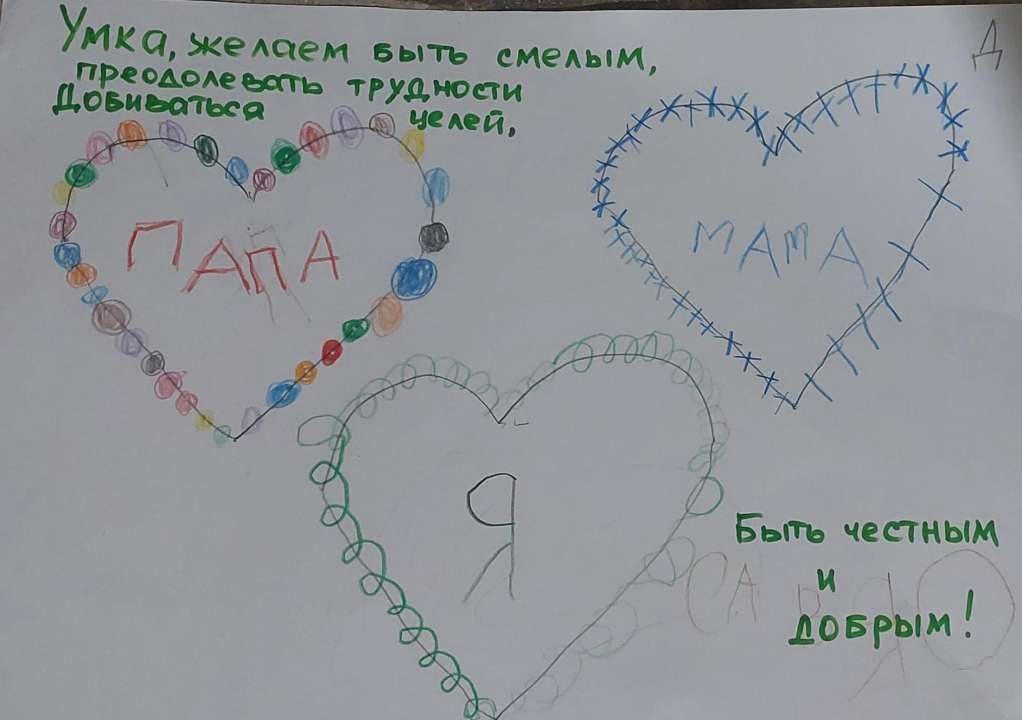 Д
Умка, желаем быть смелым,
преодолевать трудности
Добиваться целей,
ПАПА
МАМА
Я
Быть честным
и
добрым!